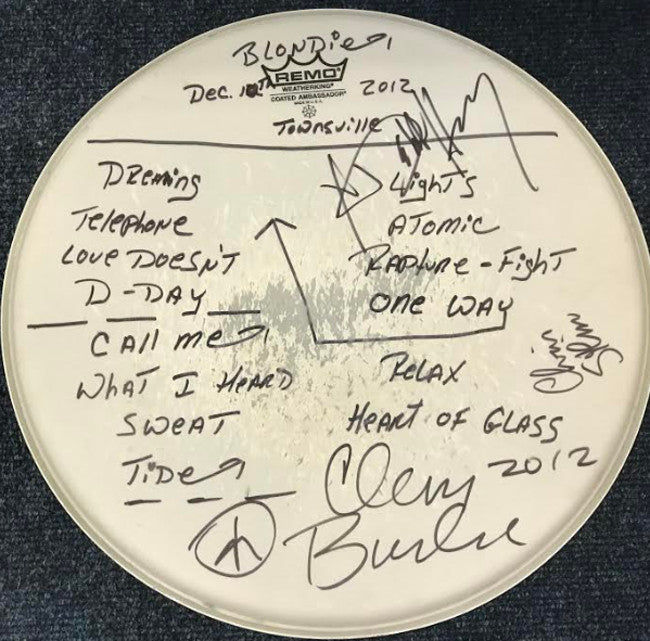 BLONDIE
REMO
WEATHERKING
COATED AMBASSADOR
Dec. 10TH 2012
Townsville
DREAMING
Telephone
LOVE DOESN'T
D-DAY
CALL Me
WHAT I HEARD
SWEAT
TIDE
LighTS
ATOMIC
RAPTURE - FighT
ONE WAY
RELAX
HEART OF GLASS
Clem 2012
Burke